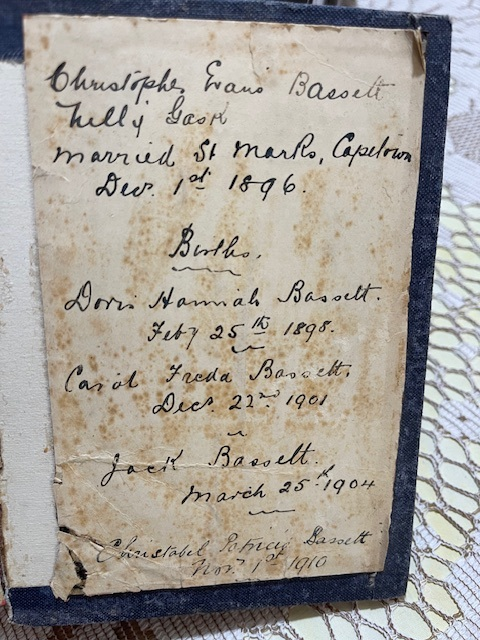 Christopher Evans Bassett
Nelly Gask
Married St Marks, Capetown
Dec. 1st 1896.
Births.
Doris Hannah Bassett.
Feby 25th 1898.
Carol Freda Bassett.
Decr. 22nd 1901
Jack Bassett.
March 25th 1904
Christabel Bassett
Novr. 1st 1910